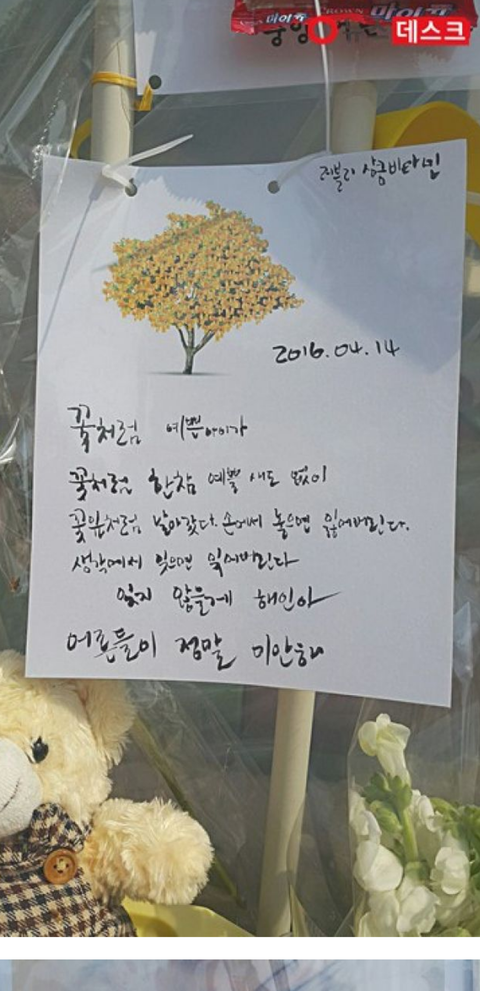 마이쮸 CROWN 마이쮸
데스크
러블리 상콤비타민
2016.04.14
꽃처럼 예쁜아이가
꽃처럼 한참 예쁠 새도 없이
꽃잎처럼 날아갔다. 손에서 놓으면 잃어버린다.
생각에서 잊으면 잊어버린다
잊지 않을게 해인아
어른들이 정말 미안해